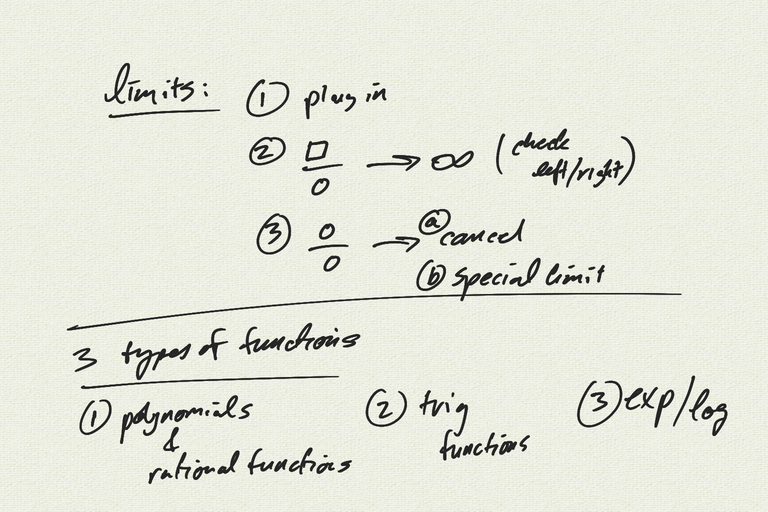 limits: ① plug in
② □/0 → ∞ (check left/right)
③ 0/0 → ⓐ cancel
ⓑ special limit
3 types of functions
① polynomials & rational functions
② trig functions
③ exp/log